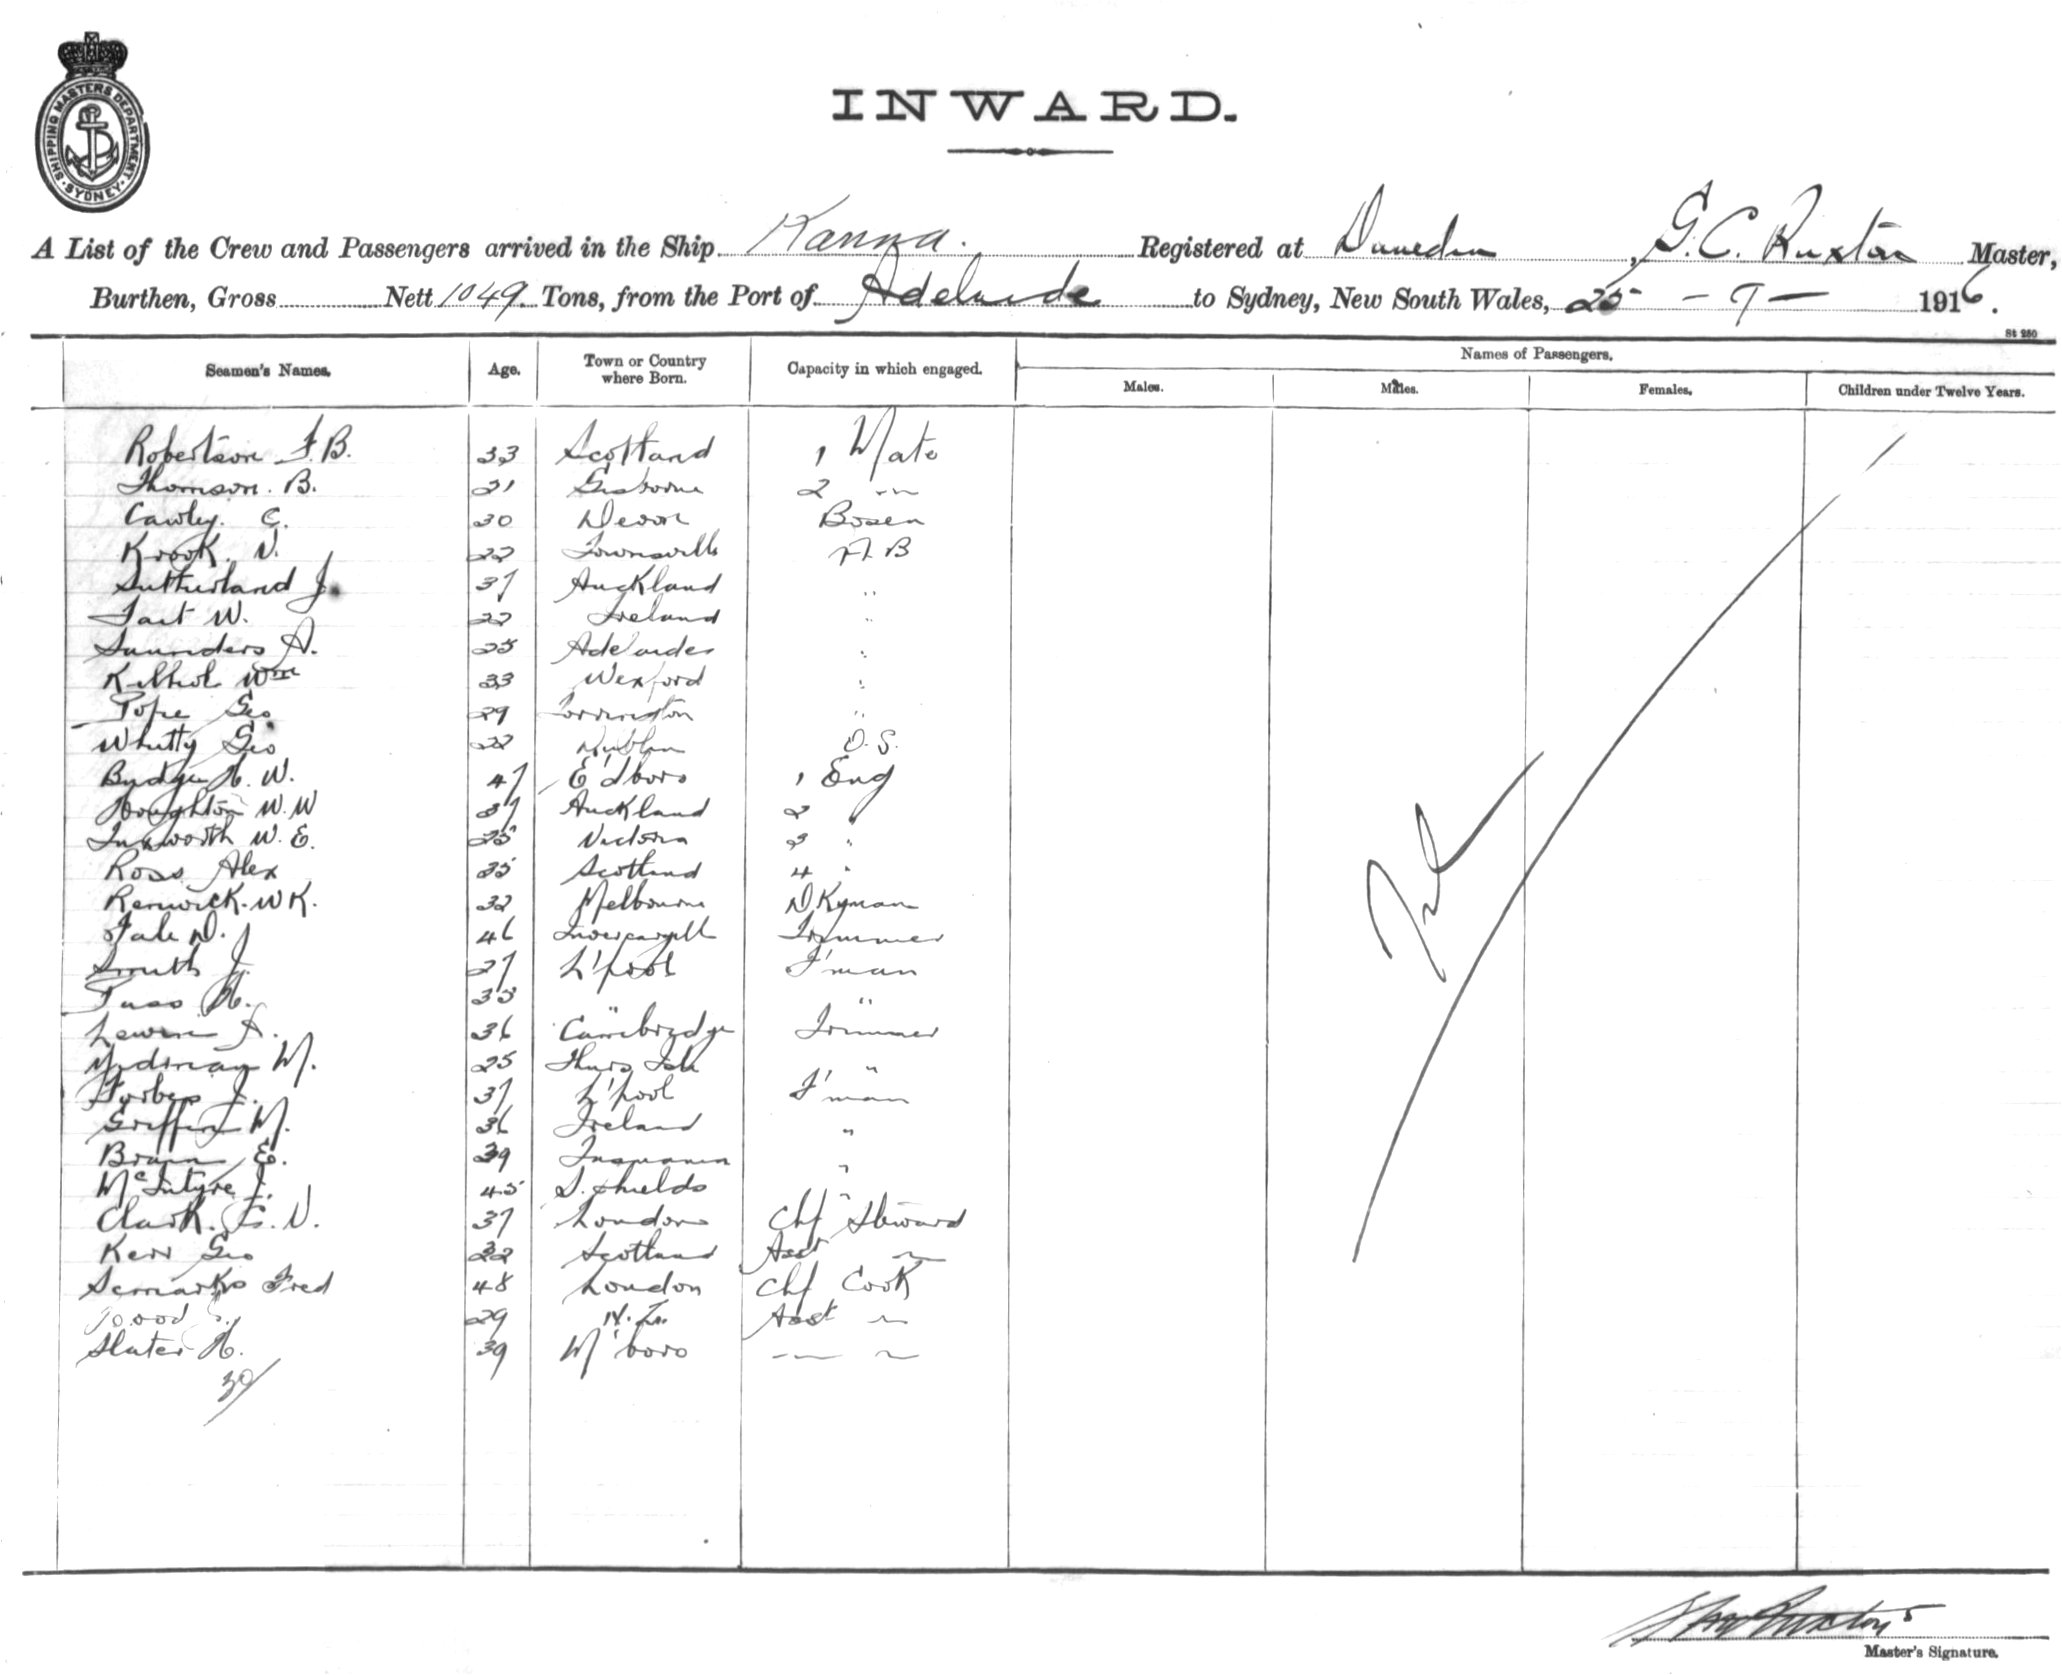 SHIPPING MASTERS DEPARTMENT. SYDNEY.
INWARD.
A List of the Crew and Passengers arrived in the Ship Kanna. Registered at Dunedin, G. C. Ruxton Master,
Burthen, Gross Nett 1049 Tons, from the Port of Adelaide to Sydney, New South Wales, 25 - 9 - 1916.
St 280
Seamen's Names. Age. Town or Country where Born. Capacity in which engaged. Names of Passengers.
Males. Males. Females. Children under Twelve Years.
Robertson F. B. 33 Scotland 1 Mate
Thomson. B. 21 Gisborne 2 "
Cawley. C. 30 Devon Bosen
Krook. N. 22 Townsville A. B
Sutherland J. 37 Auckland "
Tait W. 22 Ireland "
Saunders A. 25 Adelaide "
Wm 33 Wexford "
Pope Geo 29 Torrington "
Whitty Geo 22 Dublin O. S.
Budge H. W. 47 E'dboro 1 Eng
Houghton W. W 37 Auckland 2 "
Inxworth W. E. 25 Victoria 3 "
Ross Alex 35 Scotland 4 "
Renwick. W K. 32 Melbourne D Kyman
D. 46 Invercargill Trimmer
Smith J. 27 L'pool F'man
H. 35 " "
Lewin A. 36 Cambridge Trimmer
M. 25 Thurs Isle "
Forbes J. 37 L'pool F'man
Griffin M. 36 Ireland "
E. 39 Tasmania "
McIntyre J. 45 S. Shields "
Clark. F. N. 37 London Chf Steward
Kerr Geo 22 Scotland Asst "
Semarks Fred 48 London Chf Cook
29 N. Z. Asst "
Slater H. 39 M'boro " "
30
Nil
Ruxton
Master's Signature.